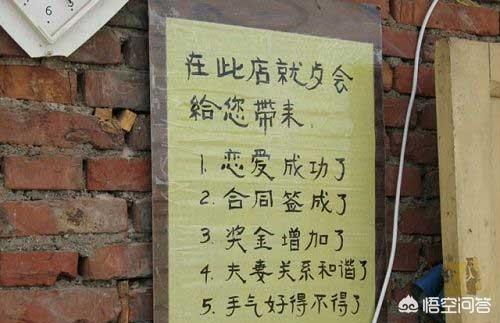 6
在此店就歺会
給您带来
1. 恋爱成功了
2. 合同签成了
3. 奖金增加了
4. 夫妻关系和谐了
5. 手气好得不得了
悟空问答